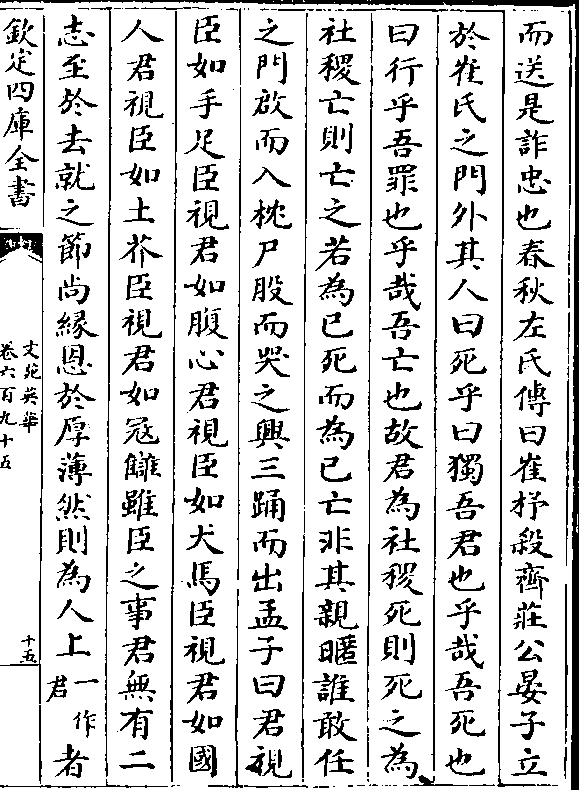 而送是詐忠也春秋左氏傳曰崔杼殺齊莊公晏子立
於崔氏之門外其人曰死乎曰獨吾君也乎哉吾死也
曰行乎吾罪也乎哉吾亡也故君為社稷死則死之為
社稷亡則亡之若為已死而為已亡非其親暱誰敢任
之門啟而入枕尸股而哭之興三踊而出孟子曰君視
臣如手足臣視君如腹心君視臣如犬馬臣視君如國
人君視臣如土芥臣視君如冦讎雖臣之事君無有二
志至於去就之節尚縁恩於厚薄然則為人上一作君者
欽定四庫全書
文苑英華
卷六百九十五
十五